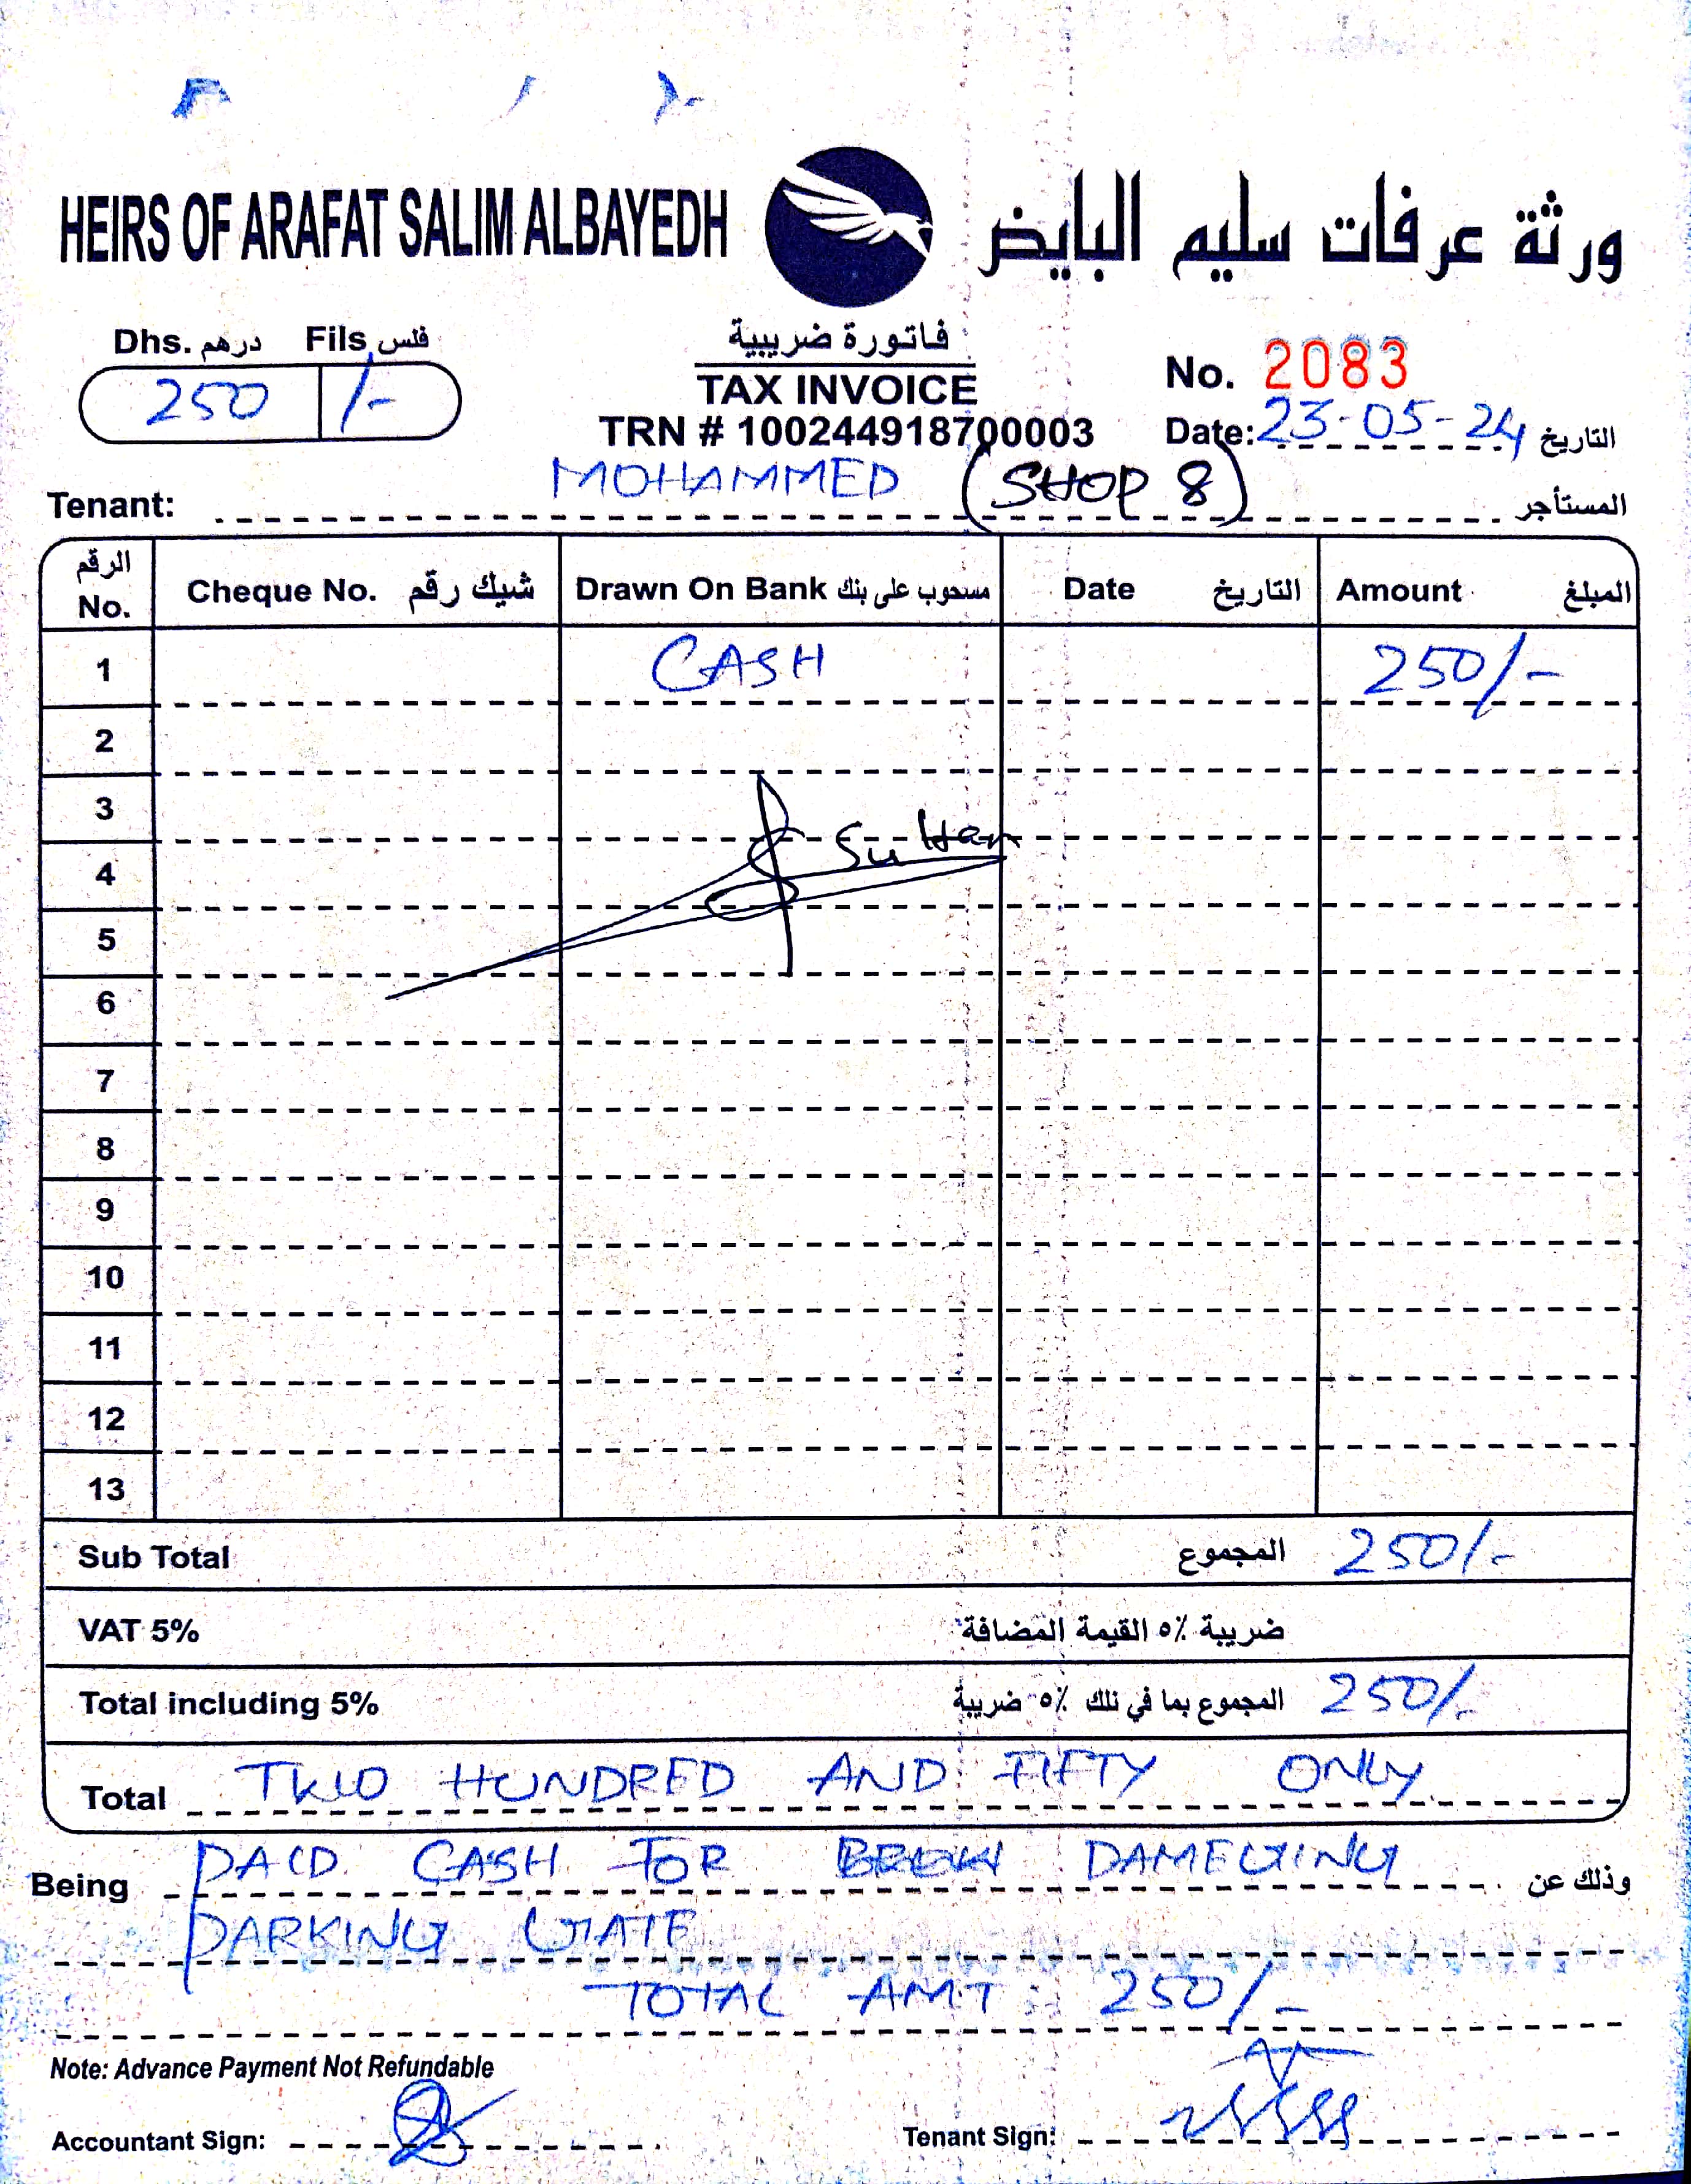 HEIRS OF ARAFAT SALIM ALBAYEDH ورثة عرفات سليم البايض
Dhs. درهم Fils فلس
250 /-
فاتورة ضريبية
TAX INVOICE
TRN # 100244918700003
No. 2083
Date: 23-05-24 التاريخ
Tenant: MOHAMMED (SHOP 8) المستأجر
الرقم No. Cheque No. شيك رقم Drawn On Bank مسحوب على بنك Date التاريخ Amount المبلغ
1 CASH 250/-
2
3
4 Sultan
5
6
7
8
9
10
11
12
13
Sub Total المجموع 250/-
VAT 5% ضريبة ٥٪ القيمة المضافة
Total including 5% المجموع بما في ذلك ٥٪ ضريبة 250/-
Total TWO HUNDRED AND FIFTY ONLY
Being PAID CASH FOR DAMEGING وذلك عن
PARKING GATE
TOTAL AMT 250/-
Note: Advance Payment Not Refundable
Accountant Sign: Tenant Sign: